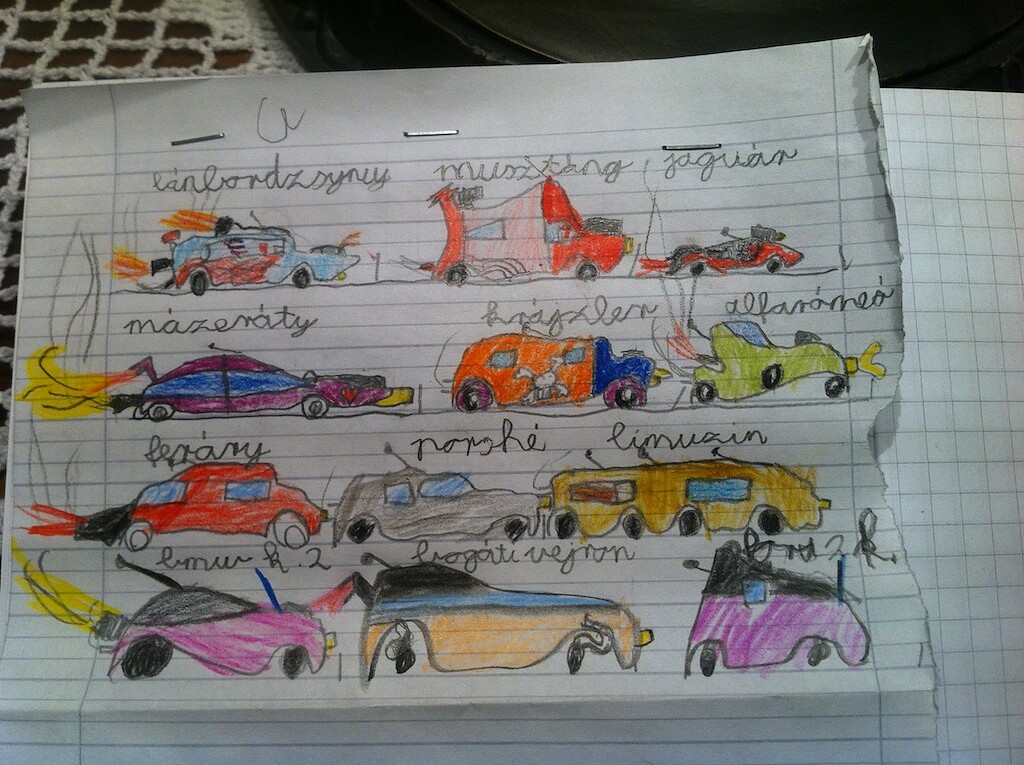 lánbordzsyny musztáng jaguár
mázeráty krájzler alfarómeó
feráry porshé limuzin
bmw k. 2 bogáti vejron ford 2 k.